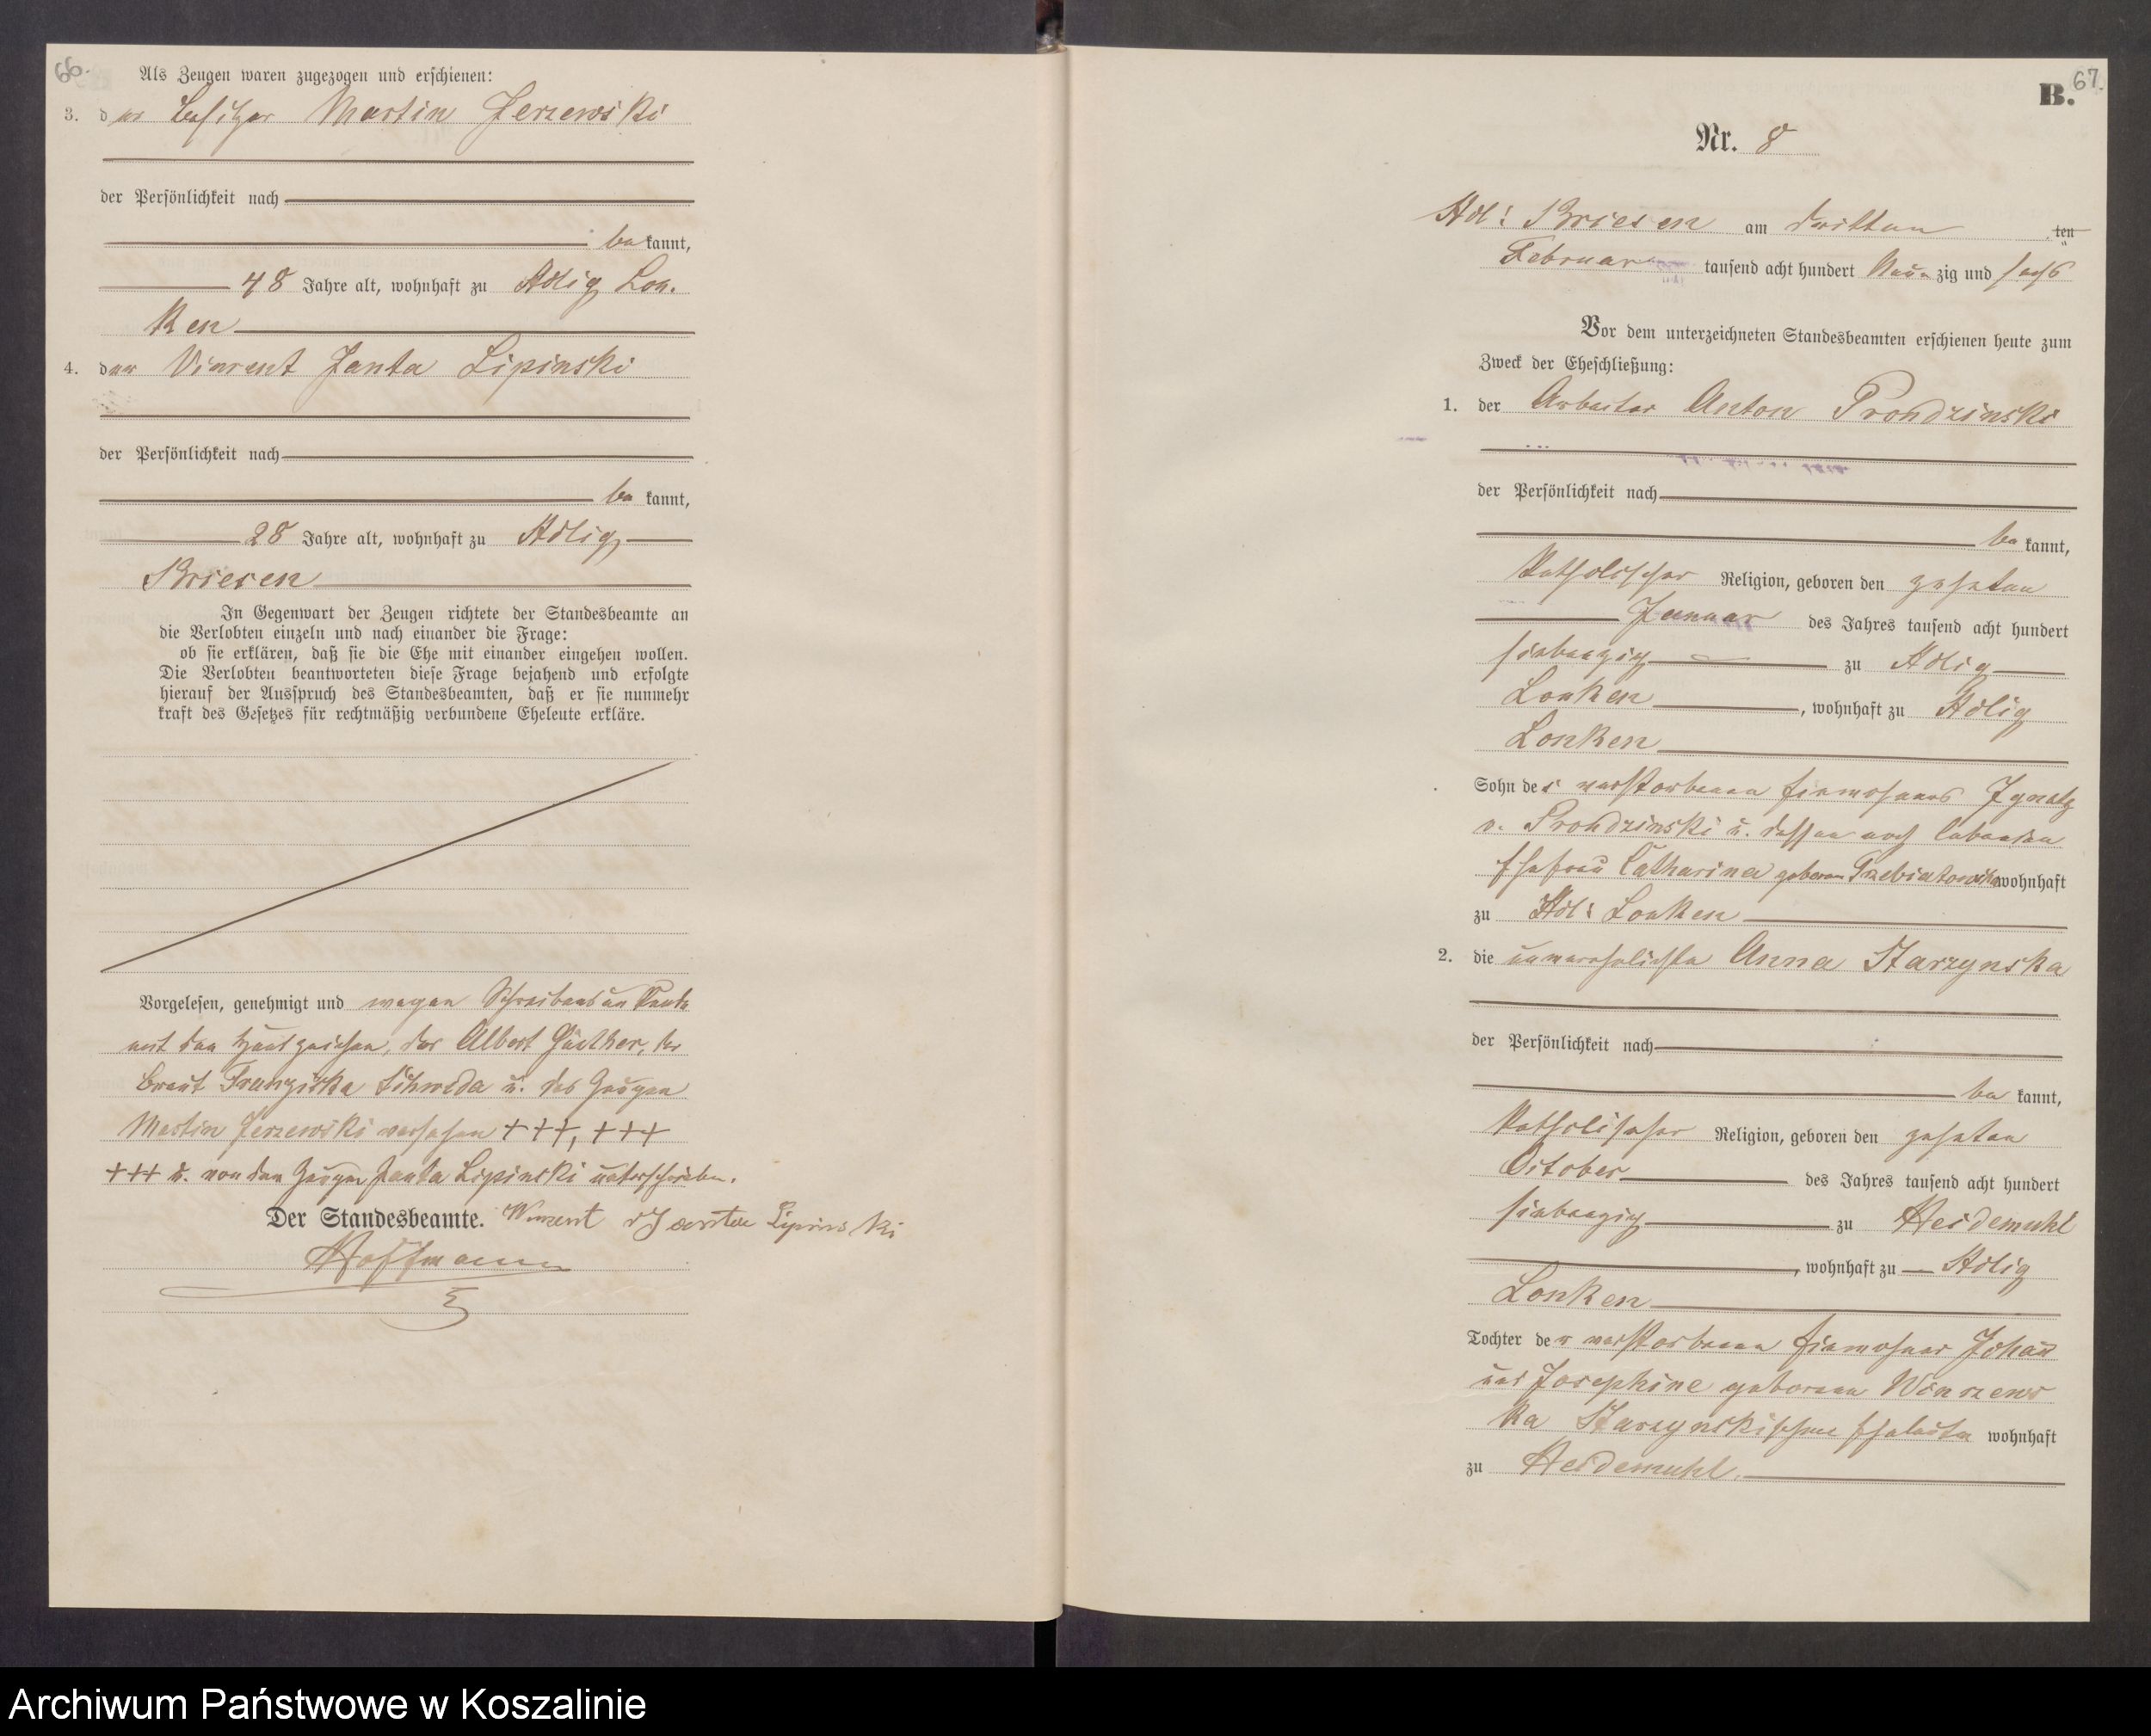 66.
Als Zeugen waren zugezogen und erschienen:
3. der Besitzer Martin Jerzewski
der Persönlichkeit nach
be kannt,
48 Jahre alt, wohnhaft zu Adlig Lon-
ken
4. der Vincent Janta Lipinski
der Persönlichkeit nach
be kannt,
28 Jahre alt, wohnhaft zu Adlig
Briesen
In Gegenwart der Zeugen richtete der Standesbeamte an
die Verlobten einzeln und nach einander die Frage:
ob sie erklären, daß sie die Ehe mit einander eingehen wollen.
Die Verlobten beantworteten diese Frage bejahend und erfolgte
hierauf der Ausspruch des Standesbeamten, daß er sie nunmehr
kraft des Gesetzes für rechtmäßig verbundene Eheleute erkläre.
Vorgelesen, genehmigt und wegen Schreibensunkunde
mit den Handzeichen, des Albert Günther, der
Braut Franziska Schweda u. des Zeugen
Martin Jerzewski versehen +++, +++
+++ u. von dem Zeugen Janta Lipinski unterschrieben.
Der Standesbeamte. Winzent Janta Lipinski
Hoffmann
B. 67.
Nr. 8
Adl: Briesen am dritten ten
Februar tausend acht hundert Neun zig und sechs
Vor dem unterzeichneten Standesbeamten erschienen heute zum
Zweck der Eheschließung:
1. der Arbeiter Anton Prondzinski
der Persönlichkeit nach
be kannt,
katholischer Religion, geboren den zehnten
Januar des Jahres tausend acht hundert
siebenzig zu Adlig
Lonken, wohnhaft zu Adlig
Lonken
Sohn des verstorbenen Einwohners Ignatz
v. Prondzinski u. dessen noch lebenden
Ehefrau Catharina geboren Trzebiatowska wohnhaft
zu Adl: Lonken
2. die unverehelichte Anna Starzynska
der Persönlichkeit nach
be kannt,
katholischer Religion, geboren den zehnten
October des Jahres tausend acht hundert
siebenzig zu Heidemühl
, wohnhaft zu Adlig
Lonken
Tochter der verstorbenen Einwohner Johann
und Josephine geborenen
ka Starzynskischen Eheleute wohnhaft
zu Heidemühl.
Archiwum Państwowe w Koszalinie